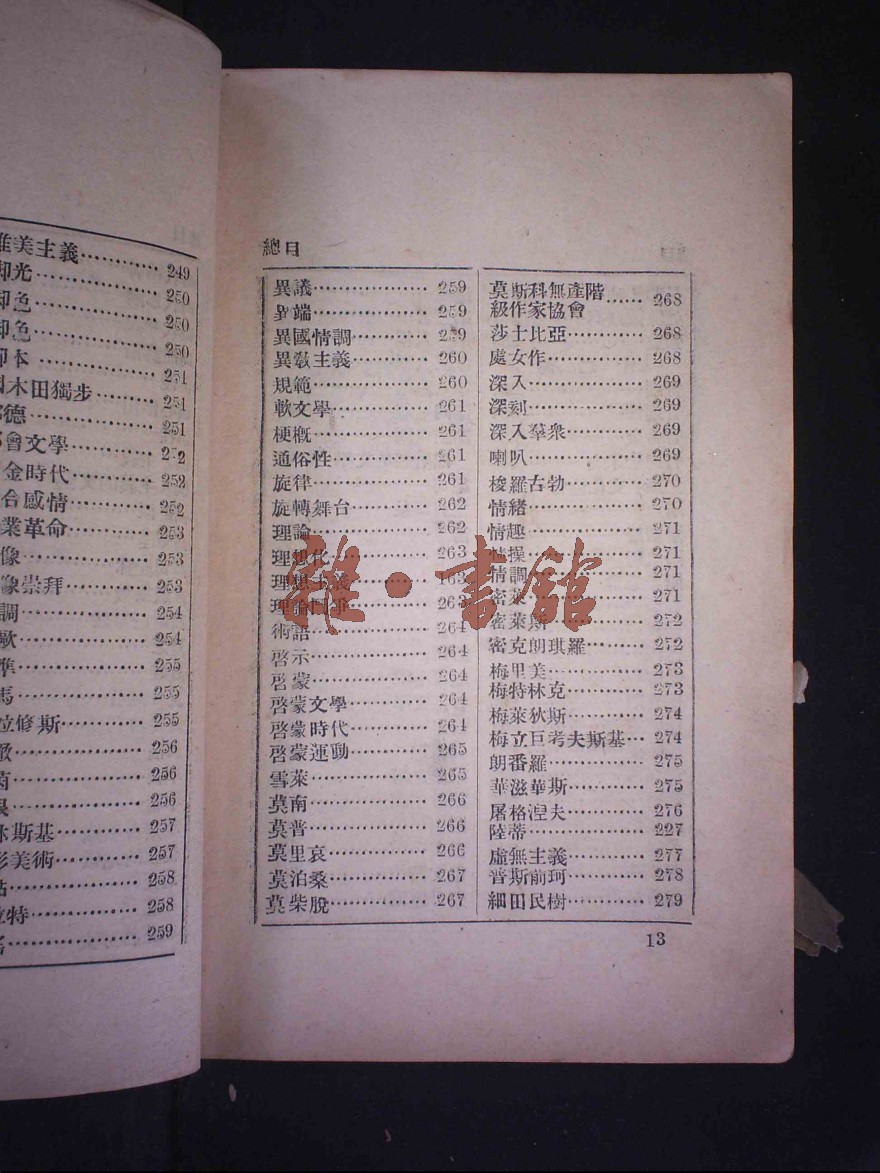 唯美主義 249
卸光 250
卸色 250
卸色 250
卸本 251
國木田獨步 251
都德 251
都會文學 252
金時代 252
合感情 252
業革命 253
像 253
像崇拜 253
調 254
歌 254
準 255
馬 255
位修斯 255
敵 256
菊 256
256
休斯基 257
形美術 257
站 258
立特 258
259
總目
異議 259
異端 259
異國情調 259
異教主義 260
規範 260
軟文學 261
梗概 261
通俗性 261
旋律 261
旋轉舞台 262
理論 262
理想化 263
理想主義 163
理論鬥爭 263
術語 264
啓示 264
啓蒙 264
啓蒙文學 264
啓蒙時代 264
啓蒙運動 265
雪萊 265
莫南 266
莫普 266
莫里哀 266
莫泊桑 267
莫柴脫 267
莫斯科無產階
級作家協會 268
莎士比亞 268
處女作 268
深入 269
深刻 269
深入羣衆 269
喇叭 269
梭羅古勃 270
情緒 270
情趣 271
情操 271
情調 271
密萊 271
密萊斯 272
密克朗琪羅 272
梅里美 273
梅特林克 273
梅萊狄斯 274
梅立巨考夫斯基 274
朗番羅 275
華滋華斯 275
屠格湼夫 276
陸蒂 227
虛無主義 277
普斯前珂 278
細田民樹 279
13
雜·書館